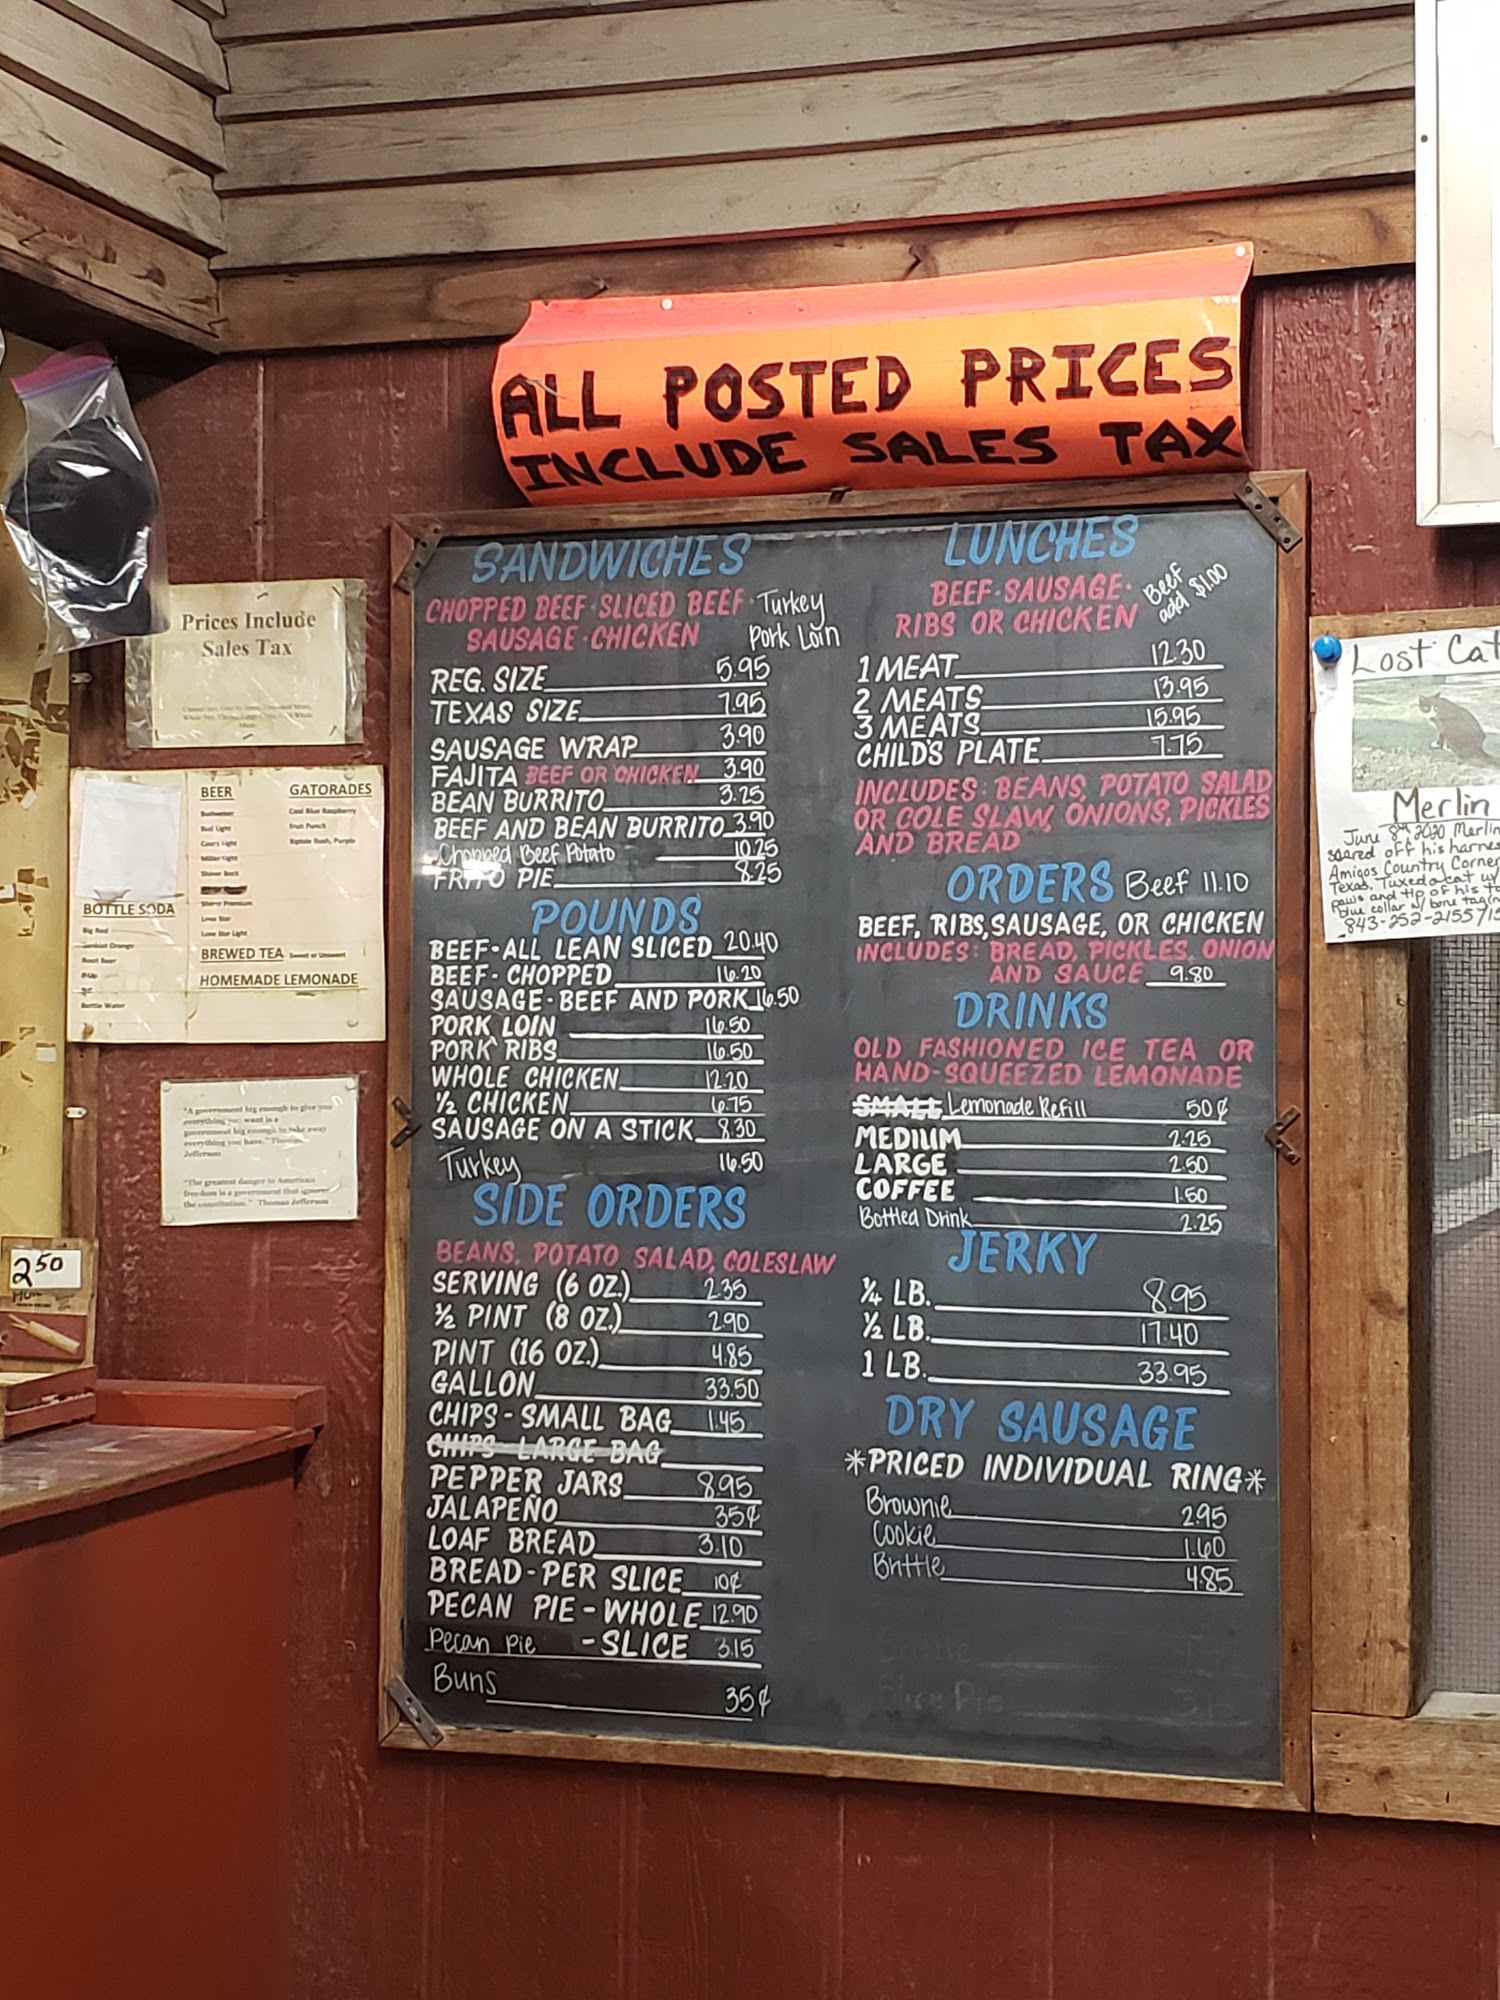 ALL POSTED PRICES
INCLUDE SALES TAX
SANDWICHES
CHOPPED BEEF · SLICED BEEF · Turkey
SAUSAGE · CHICKEN Pork Loin
REG. SIZE 5.95
TEXAS SIZE 7.95
SAUSAGE WRAP 3.90
FAJITA BEEF OR CHICKEN 3.90
BEAN BURRITO 3.25
BEEF AND BEAN BURRITO 3.90
Chopped Beef Potato 10.25
FRITO PIE 8.25
POUNDS
BEEF-ALL LEAN SLICED 20.40
BEEF-CHOPPED 16.20
SAUSAGE-BEEF AND PORK 16.50
PORK LOIN 16.50
PORK RIBS 16.50
WHOLE CHICKEN 12.20
½ CHICKEN 6.75
SAUSAGE ON A STICK 8.30
Turkey 16.50
SIDE ORDERS
BEANS, POTATO SALAD, COLESLAW
SERVING (6 OZ.) 2.35
½ PINT (8 OZ.) 2.90
PINT (16 OZ.) 4.85
GALLON 33.50
CHIPS-SMALL BAG 1.45
CHIPS-LARGE BAG
PEPPER JARS 8.95
JALAPEÑO 35¢
LOAF BREAD 3.10
BREAD-PER SLICE 10¢
PECAN PIE-WHOLE 12.90
Pecan Pie -SLICE 3.15
Buns 35¢
LUNCHES
BEEF·SAUSAGE·
RIBS OR CHICKEN
Beef
add $1.00
1 MEAT 12.30
2 MEATS 13.95
3 MEATS 15.95
CHILD'S PLATE 7.75
INCLUDES: BEANS, POTATO SALAD
OR COLE SLAW, ONIONS, PICKLES
AND BREAD
ORDERS Beef 11.10
BEEF, RIBS, SAUSAGE, OR CHICKEN
INCLUDES: BREAD, PICKLES, ONION
AND SAUCE 9.80
DRINKS
OLD FASHIONED ICE TEA OR
HAND-SQUEEZED LEMONADE
SMALL Lemonade Refill 50¢
MEDIUM 2.25
LARGE 2.50
COFFEE 1.50
Bottled Drink 2.25
JERKY
¼ LB. 8.95
½ LB. 17.40
1 LB. 33.95
DRY SAUSAGE
*PRICED INDIVIDUAL RING*
Brownie 2.95
Cookie 1.60
Brittle 4.85
Slice Pie
Prices Include
Sales Tax
BEER
Budweiser
Bud Light
Coors Light
Miller Light
Shiner Bock
Shiner Premium
Lone Star
Lone Star Light
GATORADES
Cool Blue Raspberry
Fruit Punch
Riptide Rush, Purple
BOTTLE SODA
Big Red
Sunkist Orange
Root Beer
Bottle Water
BREWED TEA Sweet or Unsweet
HOMEMADE LEMONADE
"A government big enough to give you
everything you want is a
government big enough to take away
everything you have." Thomas
Jefferson
"The greatest danger to American
freedom is a government that ignores
the constitution." Thomas Jefferson
2.50
Lost Cat
Merlin
June 8th, 2020 Merlin
scared off his harness
Amigos Country Corner
Texas. Tuxedo cat w/
paws and tip of his
blue collar w/ bone tag
843-252-2155